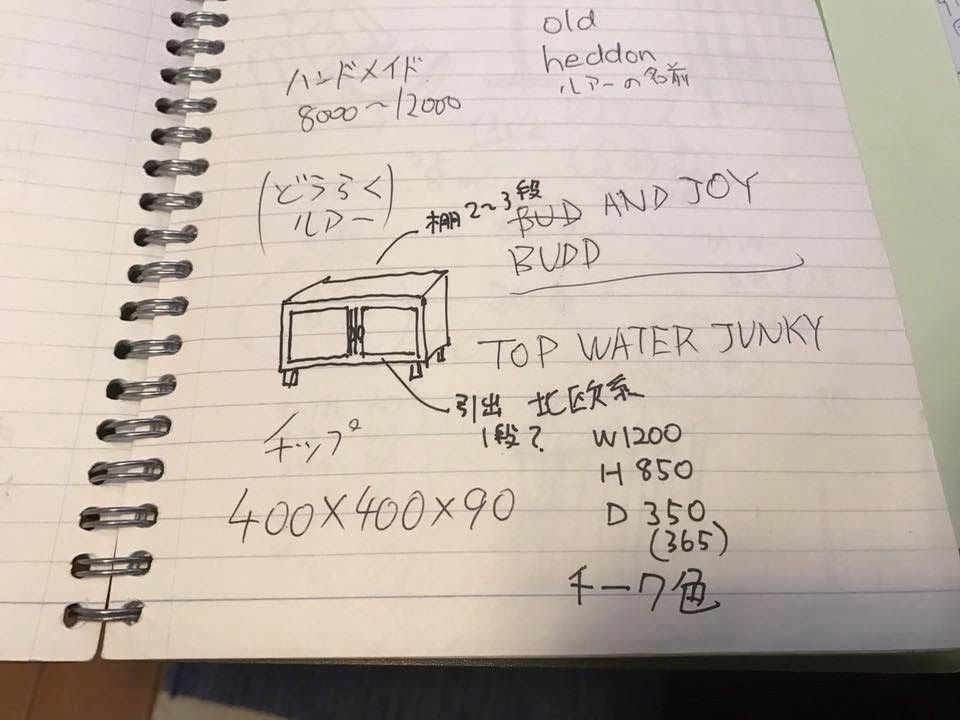 old
heddon
ルアーの名前
ハンドメイド
8000～12000
(どうらく
ルアー)
棚2～3段
BUD AND JOY
BUDD
TOP WATER JUNKY
引出 北欧系
1段?
チップ
W1200
H 850
400×400×90
D 350
(365)
チーク色